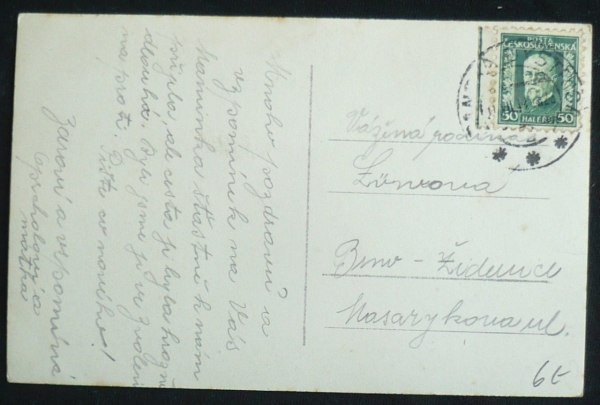 Mnoho pozdravů a
vzpomínek na Vás
maminka šťastně k nám
přijela, ale cesta jí byla hrozně
dlouhá. Byli jsme jí ve Zvoleni
naproti. Pište co nového!
Zdraví a vzpomíná
a
matka
POŠTA
ČESKOSLOVENSKÁ
50 HALÉŘŮ 50
Vážená rodina
Brno-Židenice
Masarykova ul.
6t